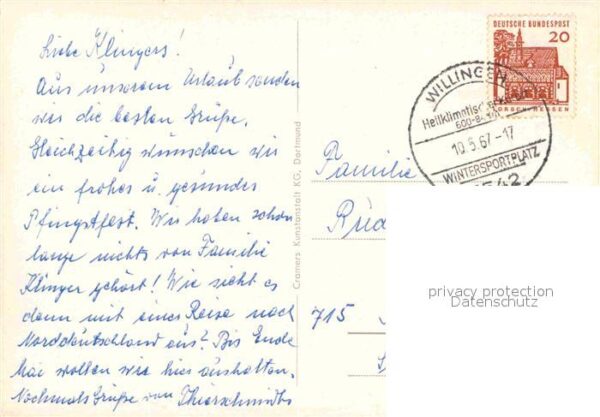 Liebe Klingers!
Aus unserem Urlaub senden
wir die besten Grüße.
Gleichzeitig wünschen wir
ein frohes u. gesundes
Pfingstfest. Wir haben schon
lange nichts von Familie
Klinger gehört! Wie sieht es
denn mit einer Reise nach
Norddeutschland aus? Bis Ende
Mai wollen wir hier aushalten.
Nochmals Grüße von Thierschmidts
Cramers Kunstanstalt KG, Dortmund
DEUTSCHE BUNDESPOST
20
LORSCH·HESSEN
WILLINGEN
Heilklimatischer
600-8
10.5.67-17
WINTERSPORTPLATZ
3542
Familie
Rud
715
privacy protection
Datenschutz